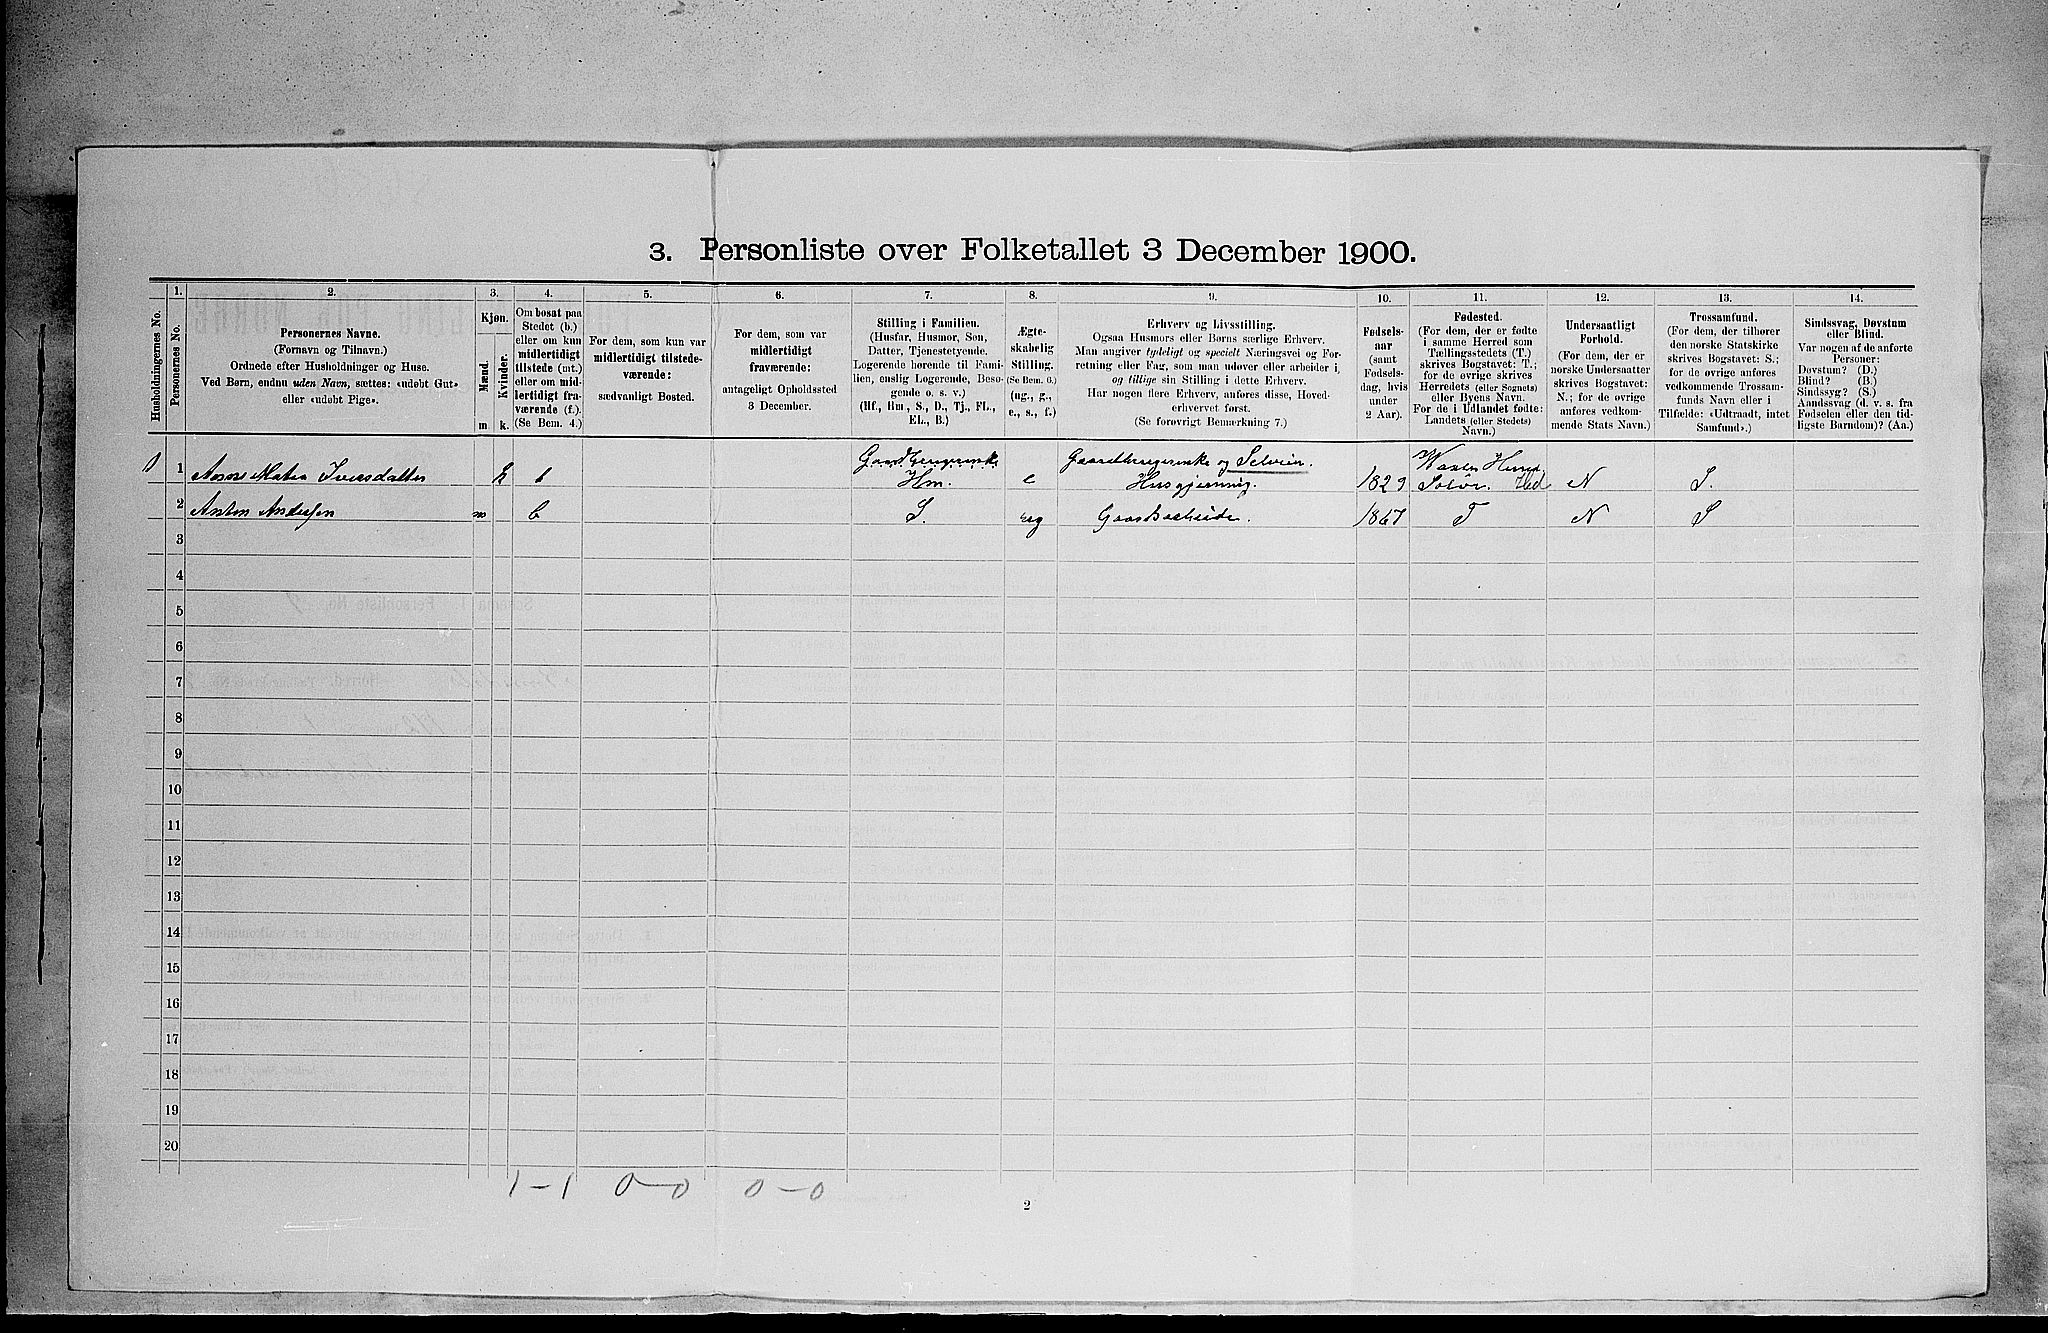 3. Personliste over Folketallet 3 December 1900.
Husholdningernes No.
1.
Personernes No.
2.
Personernes Navne.
(Fornavn og Tilnavn.)
Ordnede efter Husholdninger og Huse.
Ved Børn, endnu uden Navn, sættes: «udøbt Gut»
eller «udøbt Pige».
3.
Kjøn.
Mænd.
Kvinder.
m k.
4.
Om bosat paa
Stedet (b.)
eller om kun
midlertidigt
tilstede (mt.)
eller om mid-
lertidigt fra-
værende (f.).
(Se Bem. 4.)
5.
For dem, som kun var
midlertidigt tilstede-
værende:
sædvanligt Bosted.
6.
For dem, som var
midlertidigt
fraværende:
antageligt Opholdssted
3 December.
7.
Stilling i Familien.
(Husfar, Husmor, Søn,
Datter, Tjenestetyende,
Logerende hørende til Fami-
lien, enslig Logerende, Besø-
gende o. s. v.)
(Hf., Hm., S., D., Tj., FL.,
EL., B.)
8.
Ægte-
skabelig
Stilling.
(Se Bem. 6.)
(ug., g.,
e., s., f.)
9.
Erhverv og Livsstilling.
Ogsaa Husmors eller Børns særlige Erhverv.
Man angiver tydeligt og specielt Næringsvei og For-
retning eller Fag, som man udøver eller arbeider i,
og tillige sin Stilling i dette Erhverv.
Har nogen flere Erhverv, anføres disse, Hoved-
erhvervet først.
(Se forøvrigt Bemærkning 7.)
10.
Fødsels-
aar
(samt
Fødsels-
dag, hvis
under
2 Aar).
11.
Fødested.
(For dem, der er fødte
i samme Herred som
Tællingsstedets (T.)
skrives Bogstavet: T.;
for de øvrige skrives
Herredets (eller Sognets)
eller Byens Navn.
For de i Udlandet fødte:
Landets (eller Stedets)
Navn.)
12.
Undersaatligt
Forhold.
(For dem, der er
norske Undersaatter
skrives Bogstavet:
N.; for de øvrige
anføres vedkom-
mende Stats Navn.)
13.
Trossamfund.
(For dem, der tilhører
den norske Statskirke
skrives Bogstavet: S.;
for de øvrige anføres
vedkommende Trossam-
funds Navn eller i
Tilfælde: «Udtraadt, intet
Samfund».)
14.
Sindssvag, Døvstum
eller Blind.
Var nogen af de anførte
Personer:
Døvstum? (D.)
Blind? (B.)
Sindssyg? (S.)
Aandssvag (d. v. s. fra
Fødselen eller den tid-
ligste Barndom)? (Aa.)
1 Anne Matea Iversdatter k b Hm. e Gaardbrugerenke og Selveier. Husgjerning. 1829 Solør. Hed N S.
2 Anton Andersen m b S. ug Gaardsarbeide. 1867 T N S
3
4
5
6
7
8
9
10
11
12
13
14
15
16
17
18
19
20
1-1 0-0 0-0
2